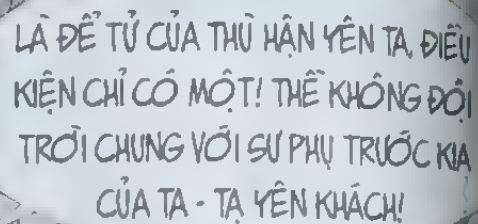 LÀ ĐỂ TỬ CỦA THÙ HẬN YÊN TA, ĐIỀU
KIỆN CHỈ CÓ MỘT! THỀ KHÔNG ĐỘI
TRỜI CHUNG VỚI SƯ PHỤ TRƯỚC KIA
CỦA TA - TẠ YÊN KHÁCH!